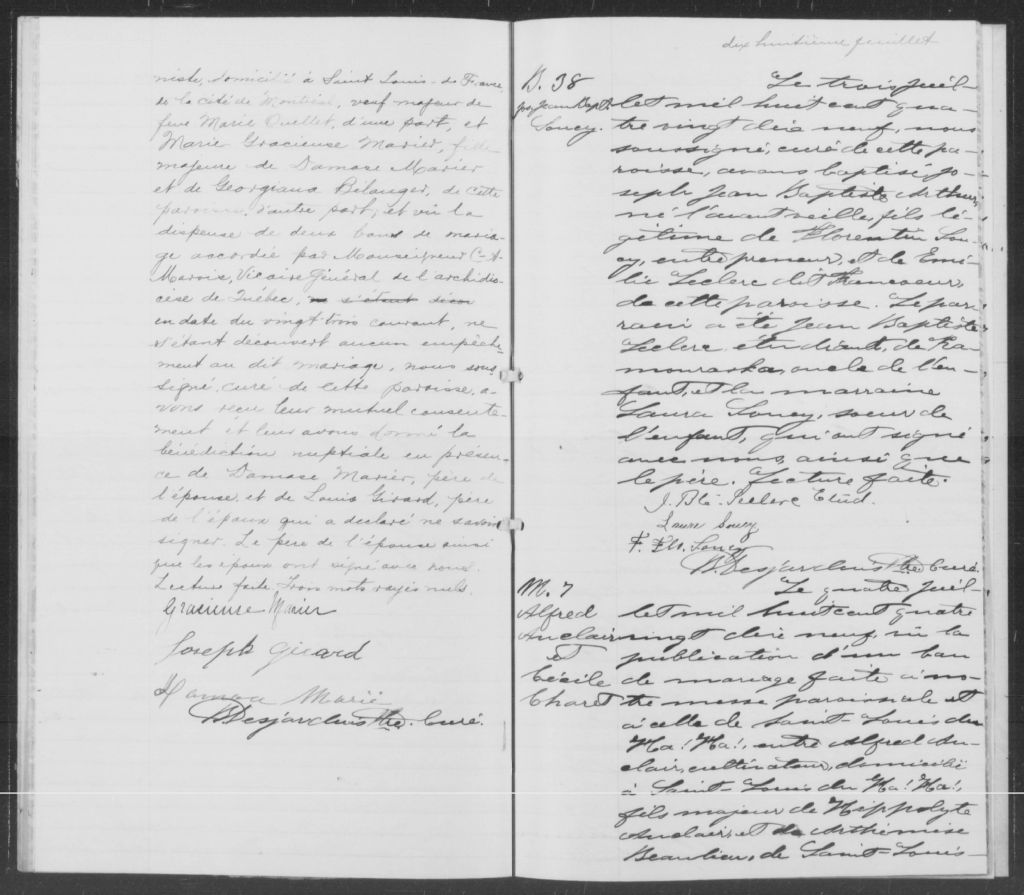 niste, domicilié à Saint Louis-de France
de la cité de Montréal, veuf majeur de
feue Marie Ouellet, d'une part, et
Marie Gracieuse Marier, fille
majeure de Damase Marier
et de Georgiana Bélanger, de cette
paroisse, d'autre part, et vu la
dispense de deux bans de maria-
ge accordée par Monseigneur C-A.
Marois, Vicaire Général de l'archidio-
cèse de Québec,
en date du vingt trois courant, ne
s'étant découvert aucun empêche-
ment au dit mariage, nous sous
signé, curé de cette paroisse, a-
vons reçu leur mutuel consente-
ment et leur avons donné la
bénédiction nuptiale en présen-
ce de Damase Marier, père de
l'épouse, et de Louis Girard, père
de l'époux qui a déclaré ne savoir
signer. Le père de l'épouse ainsi
que les époux ont signé avec nous.
Lecture faite. Trois mots rayés nuls.
Gracieuse Marier
Joseph Girard
Damase Marié
Desjardins Ptre. Curé.
dix huitième feuillet
B. 38
Jos. Jean Bapt. A.
Soucy.
Le trois juil-
let mil huit cent qua-
tre vingt dix neuf, nous
soussigné, curé de cette pa-
roisse, avons baptisé Jo-
seph Jean Baptiste Arthur,
né l'avant veille, fils lé-
gitime de Florentin Sou-
cy, entrepreneur, et de Emé-
lie Leclerc dit Francoeur,
de cette paroisse. Le par-
rain a été Jean Baptiste
Leclerc, étudiant, de Ka-
mouraska, oncle de l'en-
fant, et la marraine
Laura Soucy, soeur de
l'enfant, qui ont signé
avec nous, ainsi que
le père. Lecture faite.
J. Bte. Leclerc Etud.
Laura Soucy
F. Flo. Soucy
Desjardins Ptre Curé.
M. 7
Alfred
Anclair
et
Cécile
Charet
Le quatre juil-
let mil huit cent quatre
vingt dix neuf, vu la
publication d'un ban
de mariage faite à no-
tre messe paroissiale et
à celle de Saint-Louis du
Ha! Ha!, entre Alfred An-
clair, cultivateur, domicilié
à Saint-Louis du Ha! Ha!,
fils majeur de Hippolyte
Anclair, et de Arthémise
Beaulieu, de Saint-Louis-